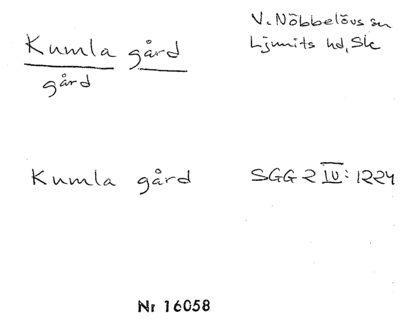 Kumla gård
gård
V. Nöbbelövs sn
Ljunits hd, Sk
Kumla gård
SGG 2 IV: 1224
Nr 16058